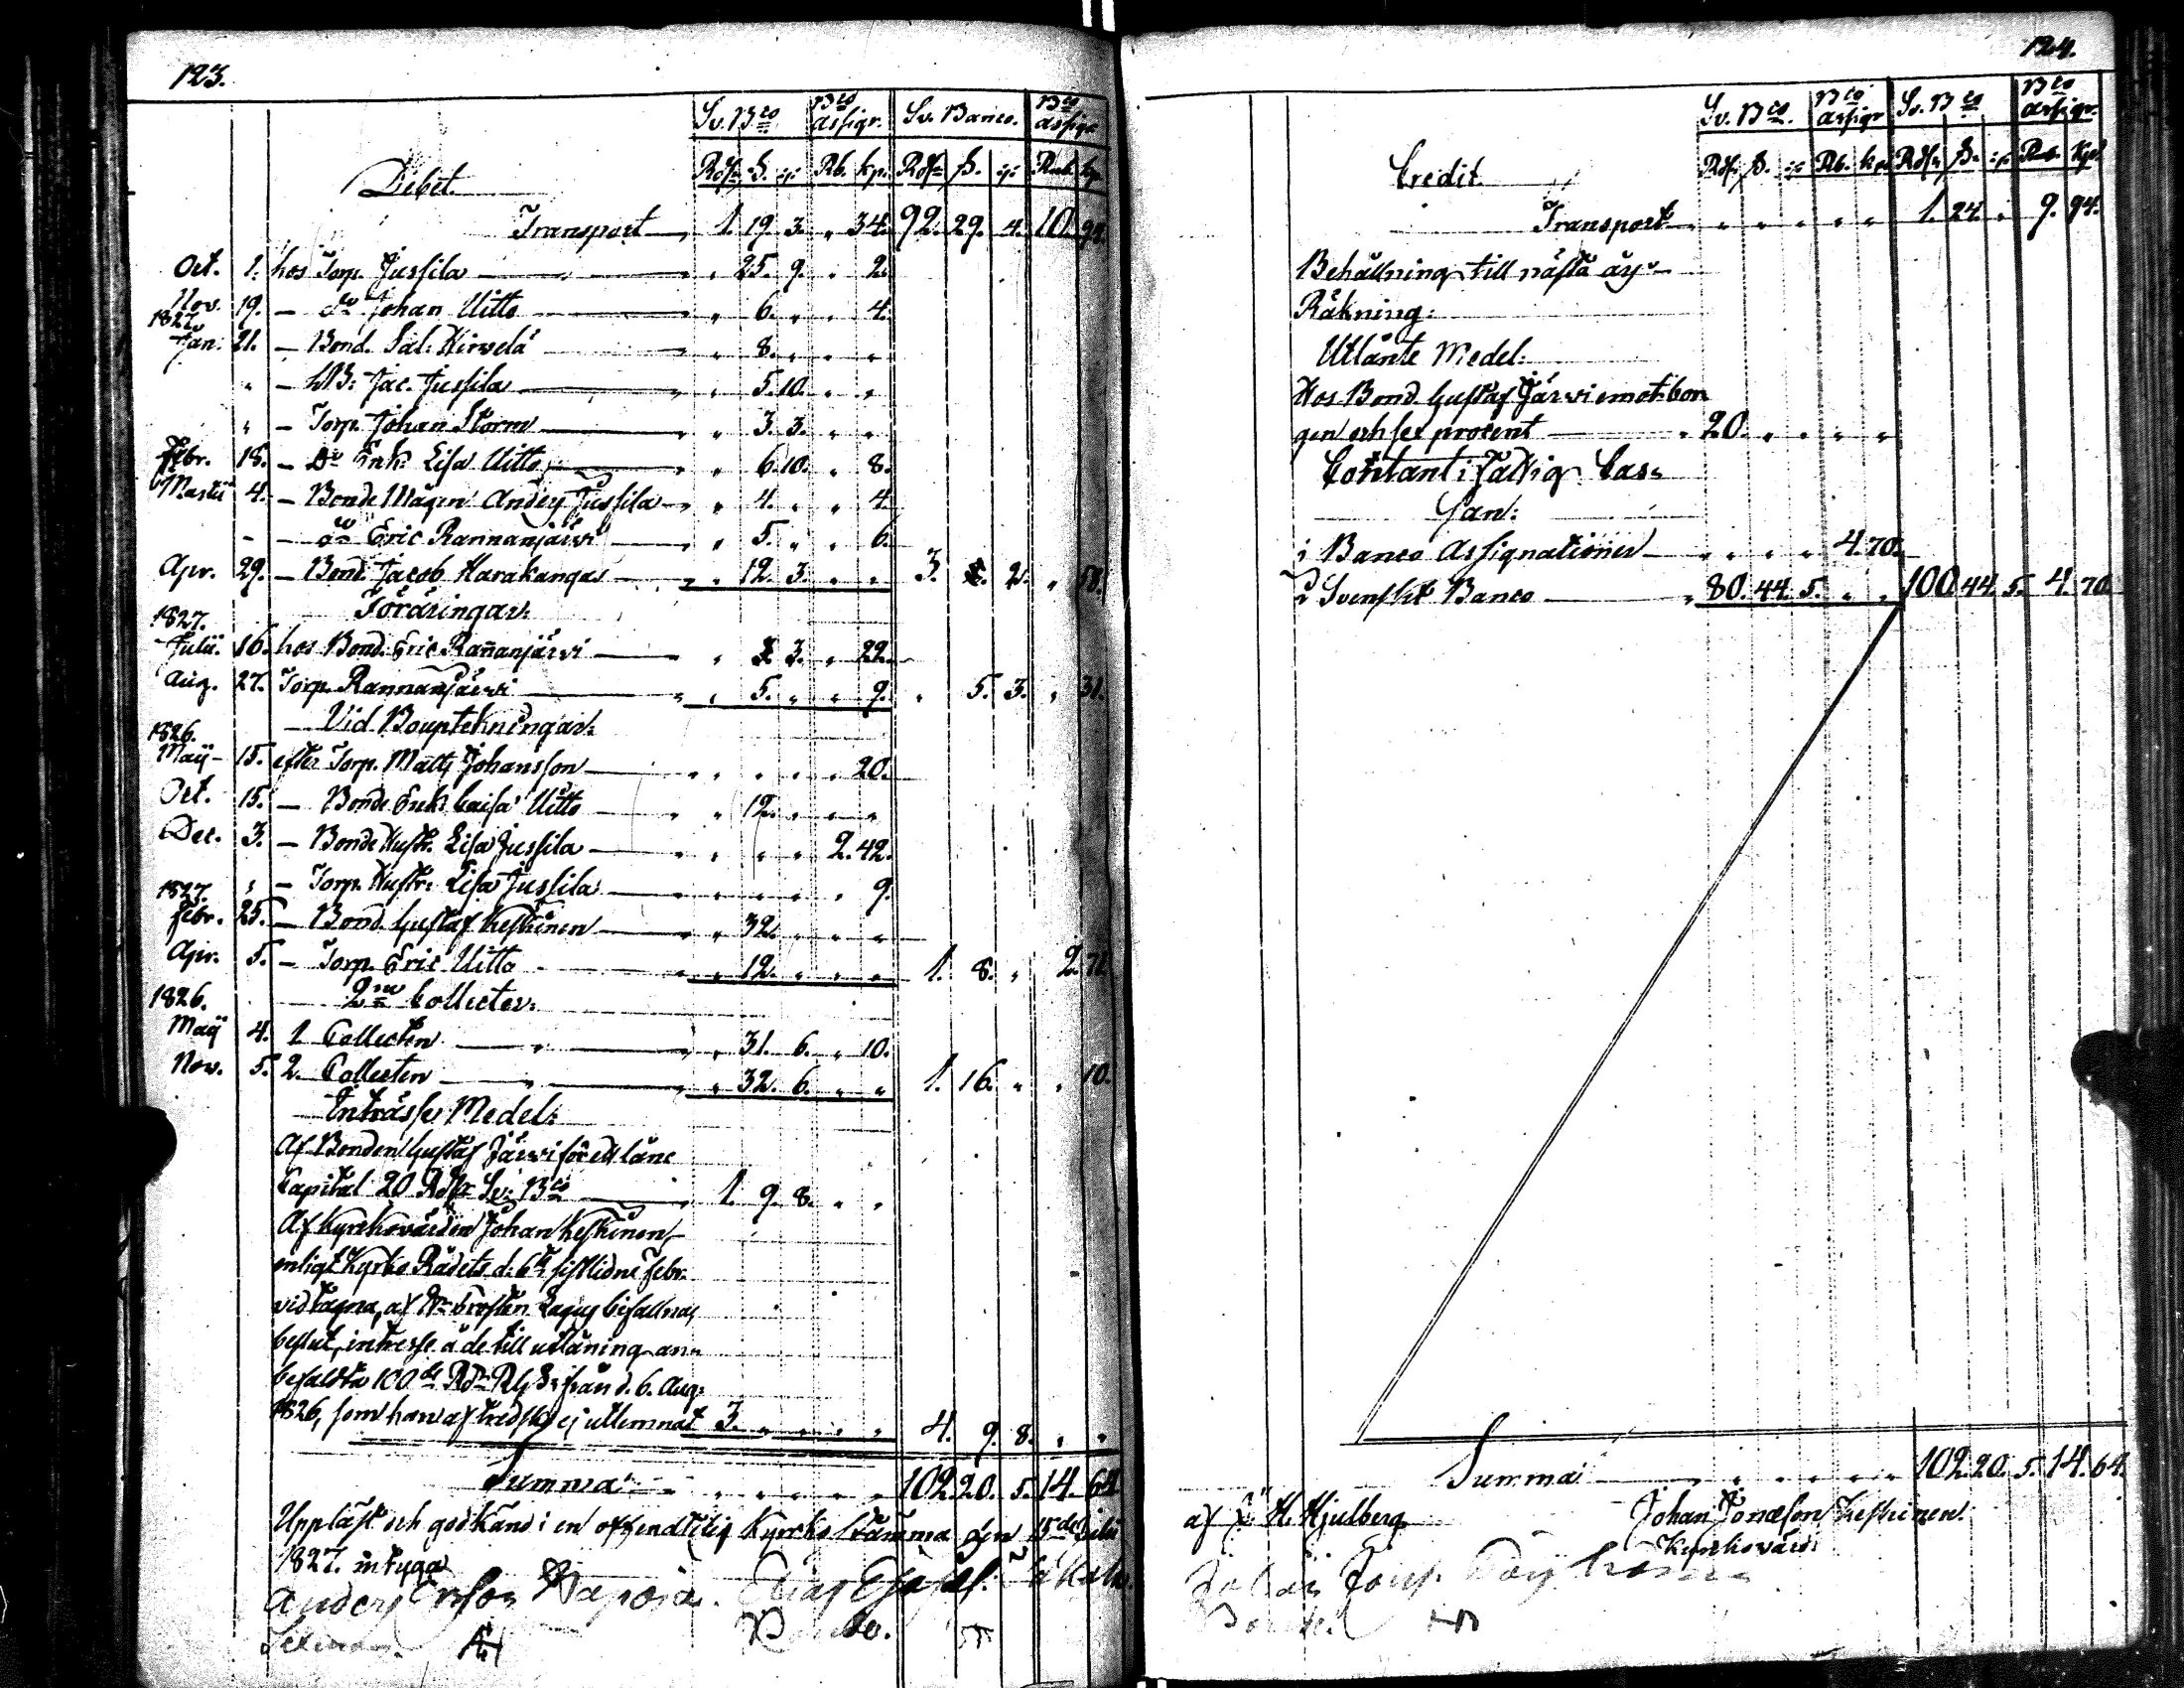 123.
Sv. Bco Bco assigr. Sv. Banco. Bco assigr
Debet. Rdr ß. rp Rb. kp. Rdr ß. rp Rub. kp.
Transport 1. 19. 3. " 34. 92. 29. 4. 10. 94.
Oct. 1. hos Torp. Jussila " 25. 9. " 2.
Nov. 19. — do Johan Uitto " 6. " " 4.
1827.
Jan: 21. — Bond. Sal: Kirvelä " 8. " " "
" — Jac. Jussila " 5. 10. " "
" — Torp. Johan Storm " 3. 3. " "
Febr. 18. — Do Enk: Lisa Uitto " 6. 10. " 8.
Martii 4. — Bonde Mågen Anders Jussila " 4. " " 4.
- — do Eric Rannanjärvi " 5. " " 6.
Apr. 29. — Bond. Jacob Harakangas " 12. 3. " " 3. 2. " 58.
Föräringar:
1827.
Julii. 16. hos Bond. Eric Rañanjärvi " 3. " 22.
Aug. 27. Torp. Rannanjärvi " 5. " " 9. " 5. 3. " 31.
Vid Bouptekningar:
1826.
Maij 15. efter Torp. Matts Johansson " " " " 20.
Oct. 15. — Bonde Enk: Caisa Uitto " 12. " " "
Dec. 3. — Bonde Hustr. Lisa Jussila " " " 2. 42.
" — Torp. Hustr: Lisa Jussila " " " " 9.
1827.
Febr. 25. — Bond. Gustaf Keskinen " 32. " " "
Apr. 5. — Torp. Eric Uitto " 12. " " " 1. 8. " 2. 71.
2ne Collecter:
1826.
Maij 4. 1 Collecten " 31. 6. " 10.
Nov. 5. 2. Collecten " 32. 6. " " 1. 16. " " 10.
Intrásse Medel:
Af Bonden Gustaf Järvi för ett låne
Capital 20 Rdr Sv: Bco 1. 9. 8. " "
Af Kyrkovärden Johan Keskinen,
enligt Kyrko Rådets d: 6te sistlidne Febr.
vidtagna, af Prosten Lagus bifallnas
beslut, intresse å de till utlåning an-
befaldta 100de Rdr Rgs från d. 6. Aug:
1826, som han af tredska ej utlemnat 3. " " " " 4. 9. 8. " "
Summa " " " " " 102. 20. 5. 14. 64.
Uppläst och godkänd i en offendtelig Kyrcko Stämma den 15de Julii
1827. intyga
Anders Ersson
124.
Sv. Bco. Bco assigr Sv. Bco Bco assigr.
Credit. Rdr ß. rp Rb. kp. Rdr ß. rp Rub. Kp.
Transport " " " " " 1. 24. " 9. 94.
Behållning till nästa års
Räkning:
Utlånte Medel:
Hos Bond. Gustaf Järvi emot bor-
gen och sex procent " 20. " " " "
Contant i Cas-
san:
i Banco Assignationer " " " " 4. 70.
d: Svenskt Banco " 80. 44. 5. " " 100. 44. 5. 4. 70.
Summa " " " " " " 102. 20. 5. 14. 64.
af H. Hjulberg Johan Jonæson Keskinen.
Kyrckovärd: